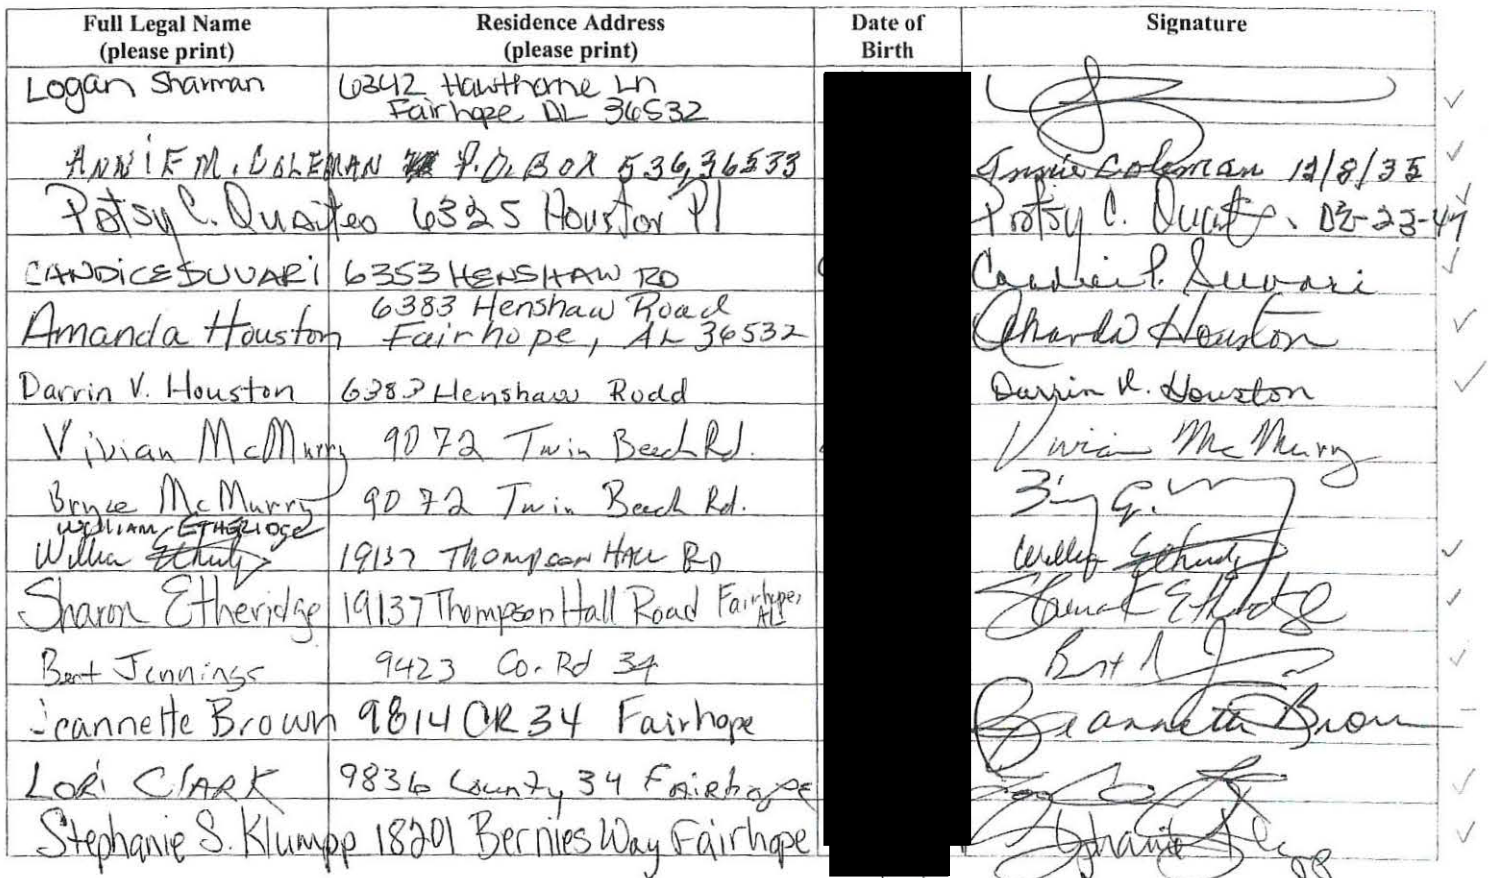 Full Legal Name (please print) Residence Address (please print) Date of Birth Signature
Logan Sharman 6342 Hawthorne Ln
Fairhope, AL 36532
ANNIE M. COLEMAN P.O. BOX 536, 36533 Annie Coleman 12/8/35
Patsy C. 6325 Houston Pl Patsy C.
CANDICE SUVARI 6353 HENSHAW RD Candice P. Suvari
6383 Henshaw Road
Amanda Houston Fairhope, AL 36532 Amanda Houston
Darrin V. Houston 6383 Henshaw Road Darrin V. Houston
Vivian McMurry 9072 Twin Beech Rd. Vivian McMurry
Bryce McMurry 9072 Twin Beech Rd.
WILLIAM ETHERIDGE
19137 Thompson Hall RD
Sharon Etheridge 19137 Thompson Hall Road Fairhope, AL
Bert Jennings 9423 Co. Rd 34
Jeannette Brown 9814 CR 34 Fairhope Jeannette Brown
LORI CLARK 9836 County 34 Fairhope
Stephanie S. Klumpp 18201 Bernies Way Fairhope